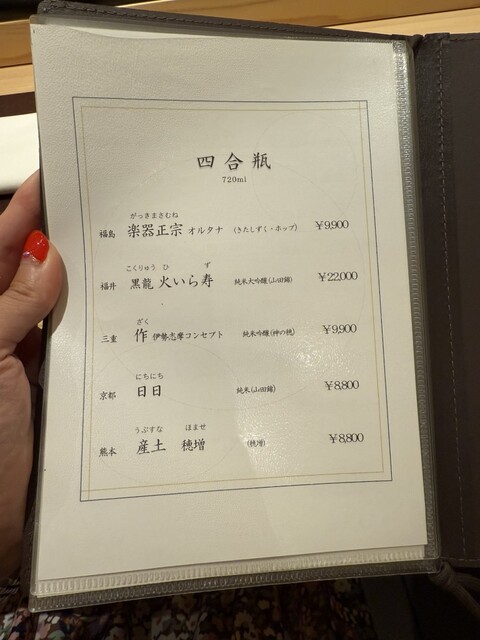 四合瓶
720ml
がっきまさむね
福島 楽器正宗 オルタナ (きたしずく・ホップ) ¥9,900
こくりゅう ひ ず
福井 黒龍 火いら寿 純米大吟醸(山田錦) ¥22,000
ざく
三重 作 伊勢志摩コンセプト 純米吟醸(神の穂) ¥9,900
にちにち
京都 日日 純米(山田錦) ¥8,800
うぶすな ほませ
熊本 産土 穂増 (穂増) ¥8,800